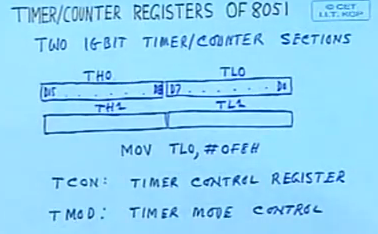 TIMER/COUNTER REGISTERS OF 8051
© CET
I.I.T. KGP
TWO 16-BIT TIMER/COUNTER SECTIONS
TH0 TL0
D15 . . . . . . D8 D7 . . . . . . D0
TH1 TL1
MOV TL0, #0FEH
TCON: TIMER CONTROL REGISTER
TMOD: TIMER MODE CONTROL